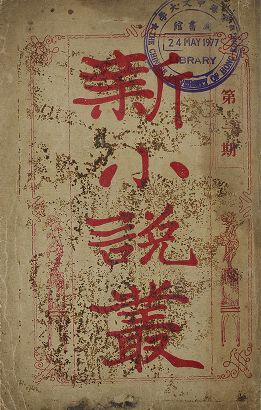 新小說叢
第
期
圖書館
24 MAY 1977
LIBRARY